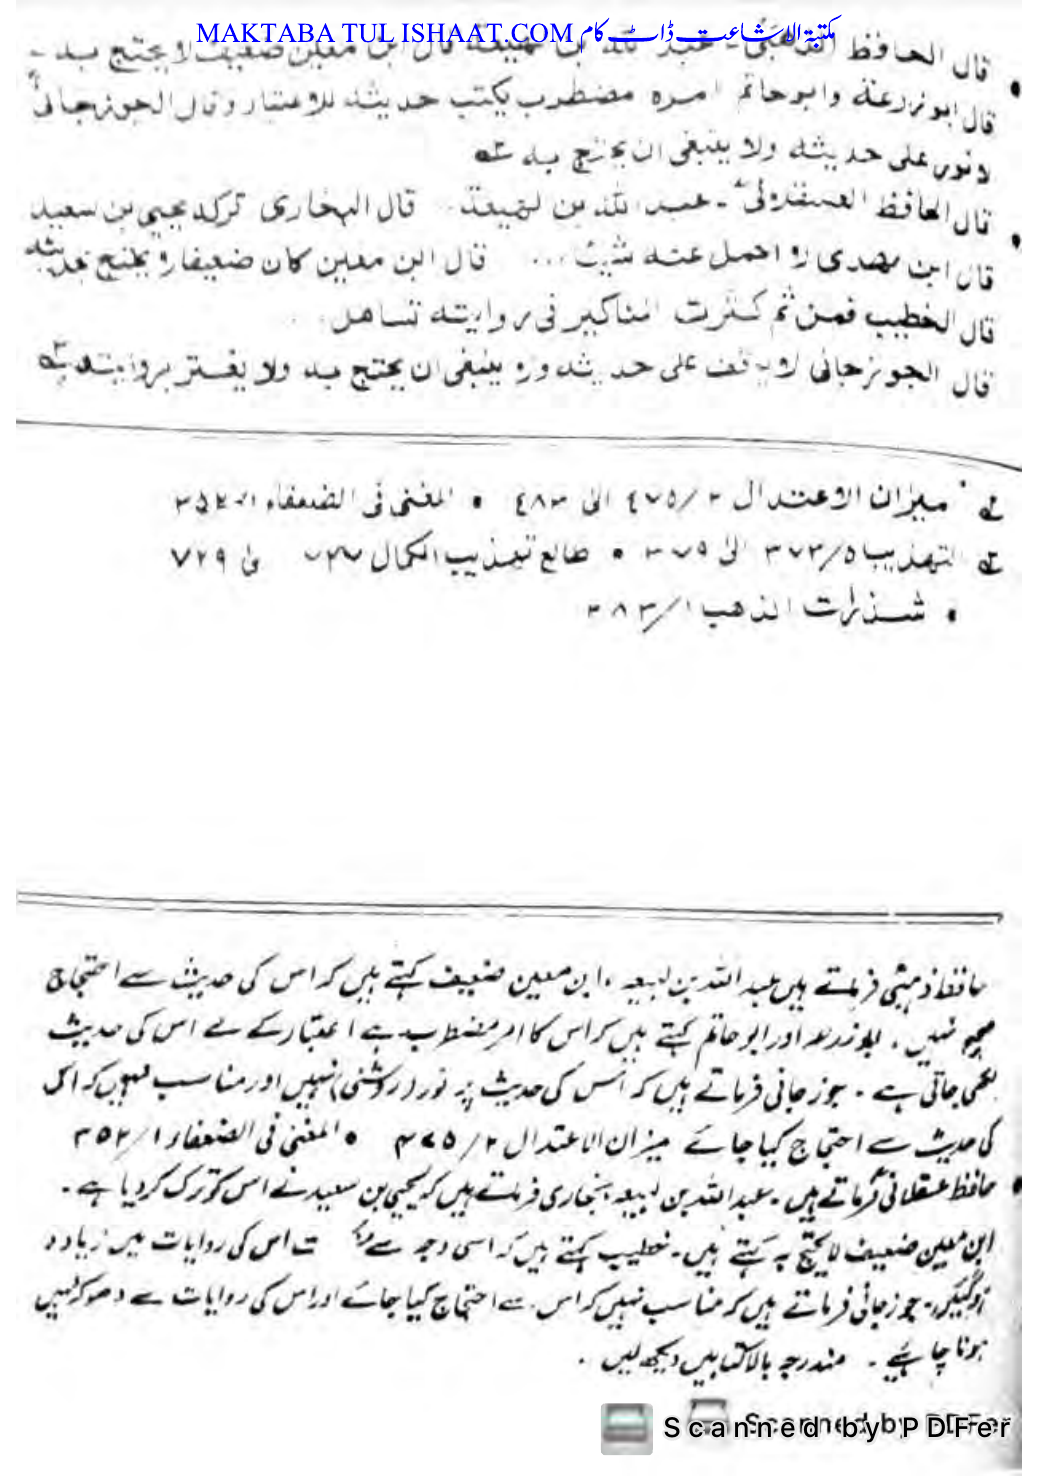 MAKTABA TUL ISHAAT.COM مکتبۃ الاشاعت ڈاٹ کام
قال الحافظ الذهبی۔ عبد الله بن لهيعة قال ابن معين ضعيف لا يحتج به۔
قال ابو زرعة وابو حاتم امره مضطرب يكتب حديثه للاعتبار وقال الجوزجانی
لا نور علی حديثه ولا ينبغی ان يحتج به
قال الحافظ العسقلانی۔ عبد الله بن لهيعة۔ قال البخاری تركه يحيی بن سعيد
قال ابن مهدی لا احمل عنه شيئا ... قال ابن معين كان ضعيفا لا يحتج بحديثه
قال الخطيب فمن ثم كثرت المناكير فی روايته تساهل۔
قال الجوزجانی لا يوقف علی حديثه ولا ينبغی ان يحتج به ولا يغتر بروايته
میزان الاعتدال ۲/۴۷۵ الی ۴۸۳ • المغنی فی الضعفاء ۱/۳۵۲
التهذيب ۵/۳۷۳ الی ۳۷۹ • تهذيب الكمال ۷۲۷ الی ۷۲۹
• شذرات الذهب ۱/۳۸۳
حافظ ذہبیؒ فرماتے ہیں عبد اللہ بن لہیعہ، ابن معین ضعیف کہتے ہیں کہ اس کی حدیث سے احتجاج
صحیح نہیں۔ ابو زرعہ اور ابو حاتم کہتے ہیں کہ اس کا امر مضطرب ہے اعتبار کے لئے اس کی حدیث
لکھی جاتی ہے۔ جوزجانی فرماتے ہیں کہ اس کی حدیث پر نور (روشنی) نہیں اور مناسب نہیں کہ اس
کی حدیث سے احتجاج کیا جائے میزان الاعتدال ۲/۴۷۵ • المغنی فی الضعفاء ۱/۳۵۲
• حافظ عسقلانیؒ فرماتے ہیں۔ عبد اللہ بن لہیعہ بخاری فرماتے ہیں کہ یحییٰ بن سعید نے اس کو ترک کر دیا ہے۔
ابن معین ضعیف لا یحتج بہ کہتے ہیں۔ خطیب کہتے ہیں کہ اسی وجہ سے اس کی روایات میں زیادہ
ہو گئیں۔ جوزجانی فرماتے ہیں کہ مناسب نہیں کہ اس سے احتجاج کیا جائے اور اس کی روایات سے دھوکہ نہیں
ہونا چاہیے۔ مندرجہ بالا کتابیں دیکھ لیں۔
Scanned by PDFer